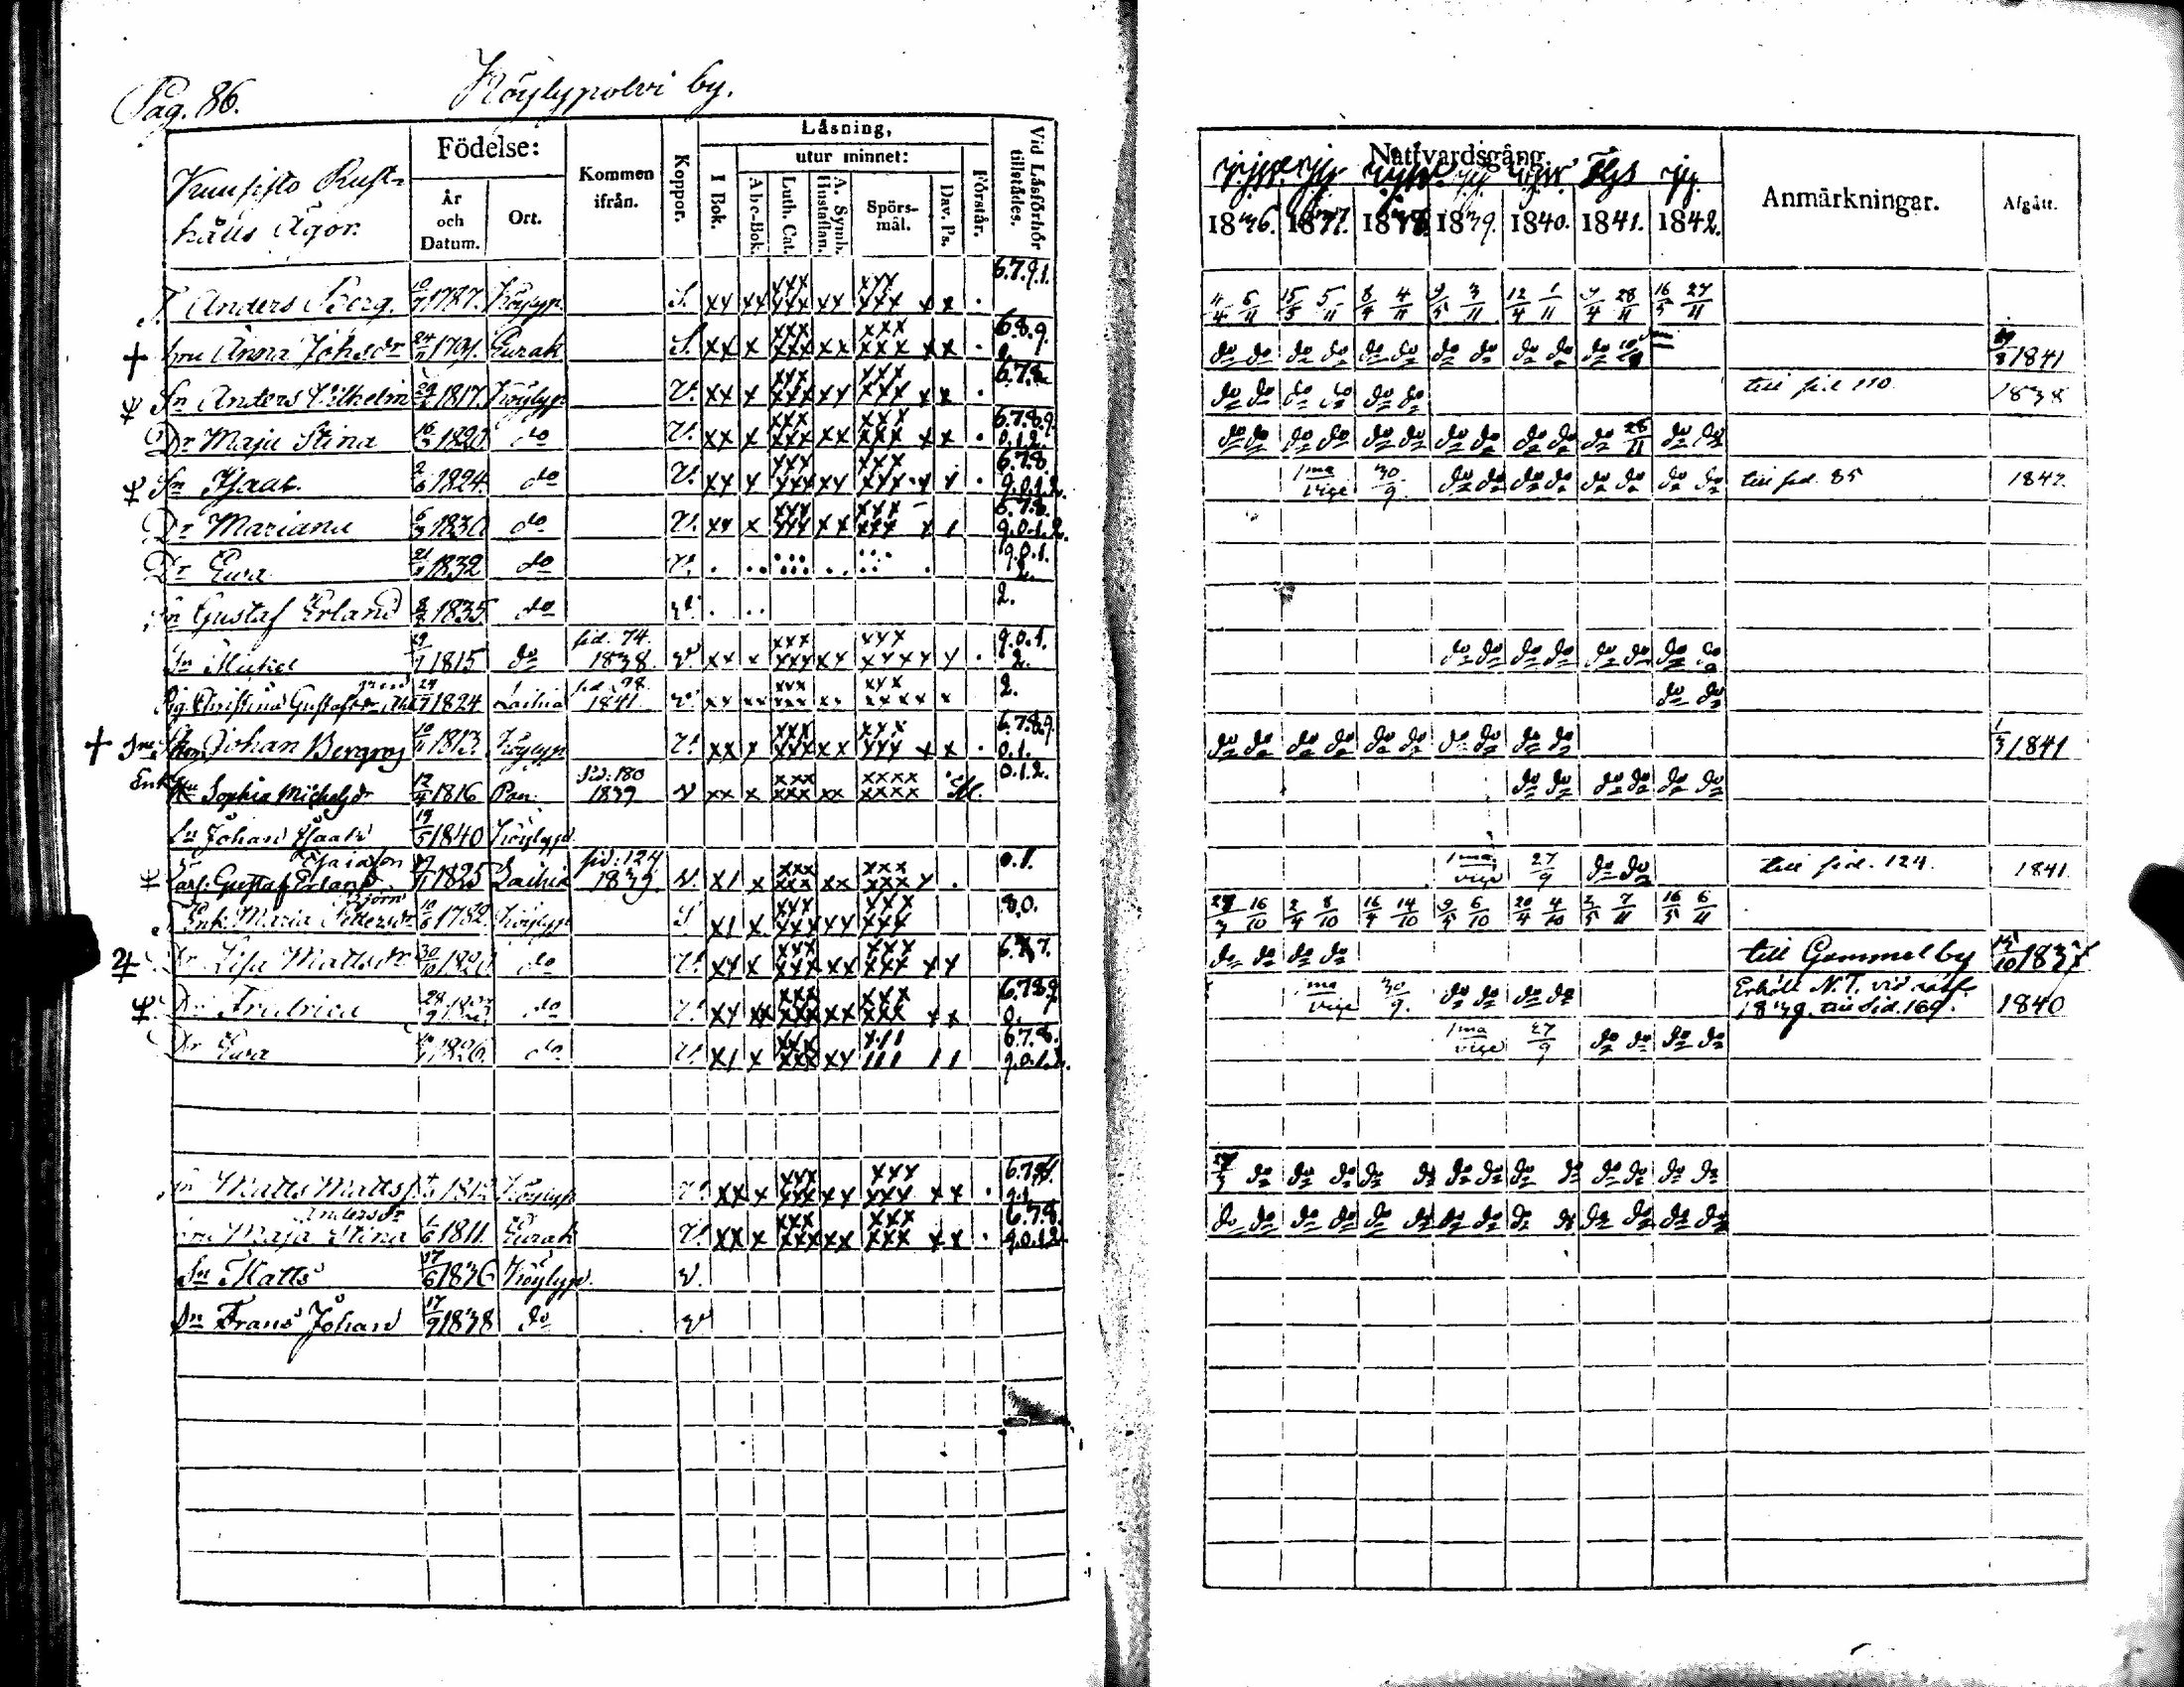 Pag. 86. Köylypolvi by.
Kuusisto Rust-
hålls Ägor.
Födelse:
År och Datum.
Ort.
Kommen ifrån.
Koppor.
Läsning,
utur minnet:
I Bok.
Abc-Bok.
Luth. Cat.
A. Symb. Hustaflan.
Spörs-mål.
Dav. Ps.
Förstår.
Vid Läsförhör tillstådes.
Nattvardsgång.
1836. 1837. 1838 1839. 1840. 1841. 1842.
Anmärkningar.
Afgått.
Anders Berg. 1787. Köylyp. S. xx xx xxx xxx xx xxx xxx x x . 6.7.9.1. 4/4 6/11 15/5 5/11 8/4 4/11 9/5 3/11 12/4 1/11 9/4 28/11 16/5 27/11
+ hu Anna Johsdr 24 1791. Eurak. S. xx x xxx xxx xx xxx xxx xx . 6.8.9. do do do do do do do do do do do 1841
Sn Anders Wilhelm 1817. Köylyp V. xx x xxx xxx xx xxx xxx xx . 6.7.8. do do do do do do till sid 110. 1838
Dr Maja Stina 16/3 1820 do V. xx x xxx xxx xx xxx xxx x x . 6.7.8.9. 0.1.2. do do do do do do do do do do do 28/11 do do
Sn Isaac. 2/6 1824. do V. xx x xxx xxx xx xxx xxx x x . 6.7.8. 9.0.1.2. 1ma vice 30/9. do do do do do do do do till sid. 85 1842.
Dr Mariana 6/3 1830 do V. xx x xxx xxx xx xxx xxx x 1 6.7.8. 9.0.1.2.
Dr Eva 21 1832 do V. 9.0.1. 2.
Sn Gustaf Erland 8 1835 do v. 2.
Sn Mickel 29/1 1815 do sid. 74. 1838. v xx x xxx xxx xx xxx xxxx x . 9.0.1. 2. do do do do do do do do
Pig. Christina Gustafsdr 1824 Laihia sid. 98. 1841. v xx xx xxx xxx xx xxx xxxxx x 2. do do
+ Johan Bergroj 10 1813. Köylyp V. xx x xxx xxx xx xxx xxx x x . 6.7.8.9. 0.1. do do do do do do do do do do 1/3 1841
Enk. Sophia Michelsdr 12/4 1816 Pan. Sid: 180 1839 v xx x xxx xxx xx xxxx xxxx 0.1.2. do do do do do do
Sn Johan Isaak 19/5 1840 Köylypo
Gustaf Erland Esaiason 1825 Laihia sid: 124 1839. v. x1 x xxx xxx xx xxx xxx x . 0.1. 1ma vice 27/9 do do till sid. 124. 1841.
Enk. Maria Pettersdr Björn 10/6 1782 Köylyp S x1 x. xxx xxx xx xxx xxx 8.0. 28/3 16/10 2/4 8/10 16/4 14/10 9/5 6/10 20/4 4/10 2/5 7/11 16/5 6/11
Dr Lisa Mattsdr 30/10 1820 do V. xx x xxx xxx xx xxx xxx x x 6.7. do do do do till Gammelby 10 1837
Dr Fredrica 28/9 do V. xx xx xxx xxx xx xxx xxx x x 6.7.8.9. 0. 1ma vice 30/9. do do do do Erhöll N.T. vid 1839. sid. 169. 1840
Dr Eva 1826. do V. x1 x xxx xxx xx x11 111 1 1 6.7.8. 9.0.1.2. 1ma vice 27/9 do do do do
Matts Matts 1812 Köylyp V. xx x xxx xxx xx xxx xxx xx . 6.7.8. 9.1. do do do do do do do do do do do do do
hu Maja Stina Andersdr 1/6 1811. Eurak V. xx x xxx xxx xx xxx xxx xx . 6.7.8. 9.0.1.2. do do do do do do do do do do do do do do
Sn Matts 17/6 1836 Köylyp. v.
Sn Frans Johan 17/9 1838 do v